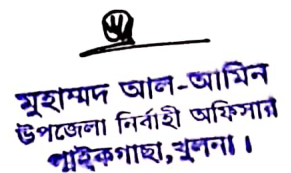 মুহাম্মদ আল-আমিন
উপজেলা নির্বাহী অফিসার
পাইকগাছা, খুলনা।